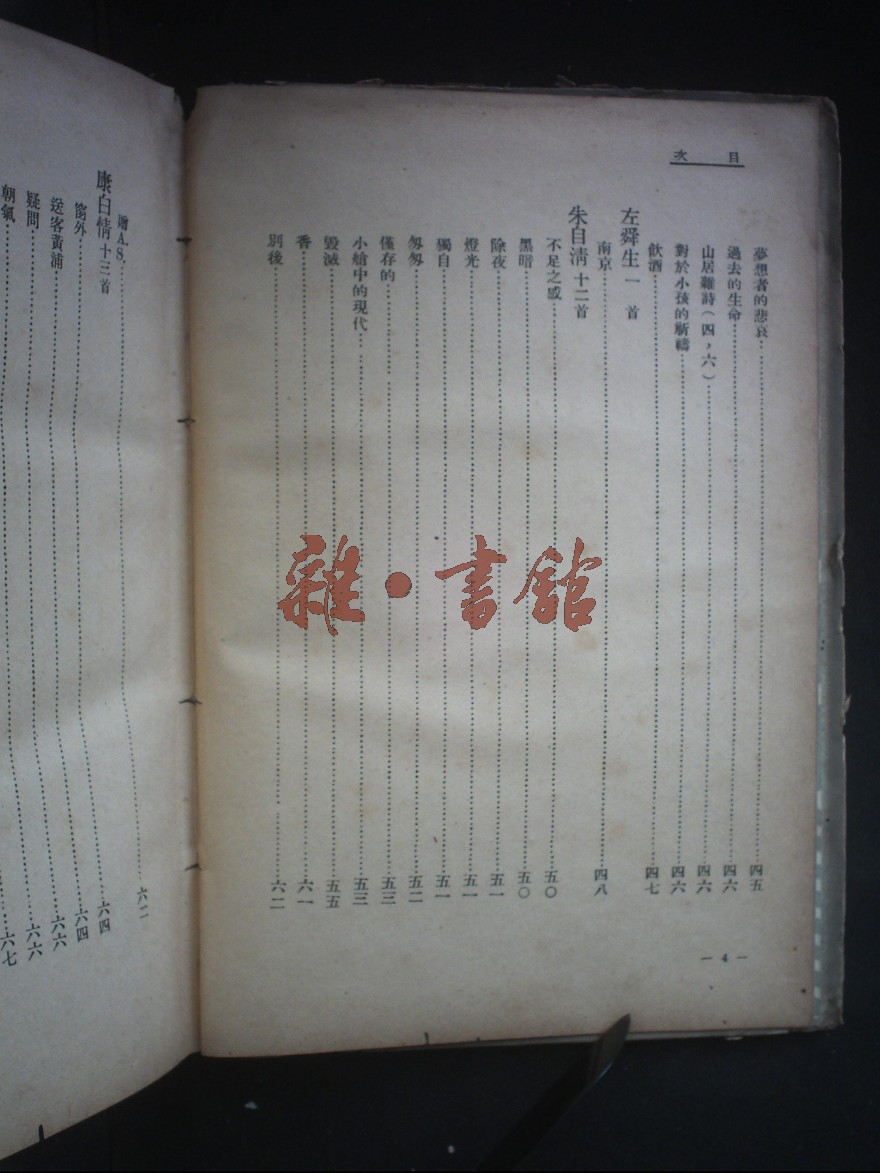 目次
夢想者的悲哀……四五
過去的生命……四六
山居雜詩(四,六)……四六
對於小孩的祈禱……四六
飲酒……四七
左舜生 一首
南京……四八
朱自清 十二首
不足之感……五〇
黑暗……五〇
除夜……五一
燈光……五一
獨自……五一
匆匆……五二
僅存的……五三
小艙中的現代……五三
毀滅……五五
香……六一
別後……六二
— 4 —
贈A.S.……六二
康白情 十三首……六四
窗外……六四
送客黃浦……六六
疑問……六六
朝氣……六七
雜·書館